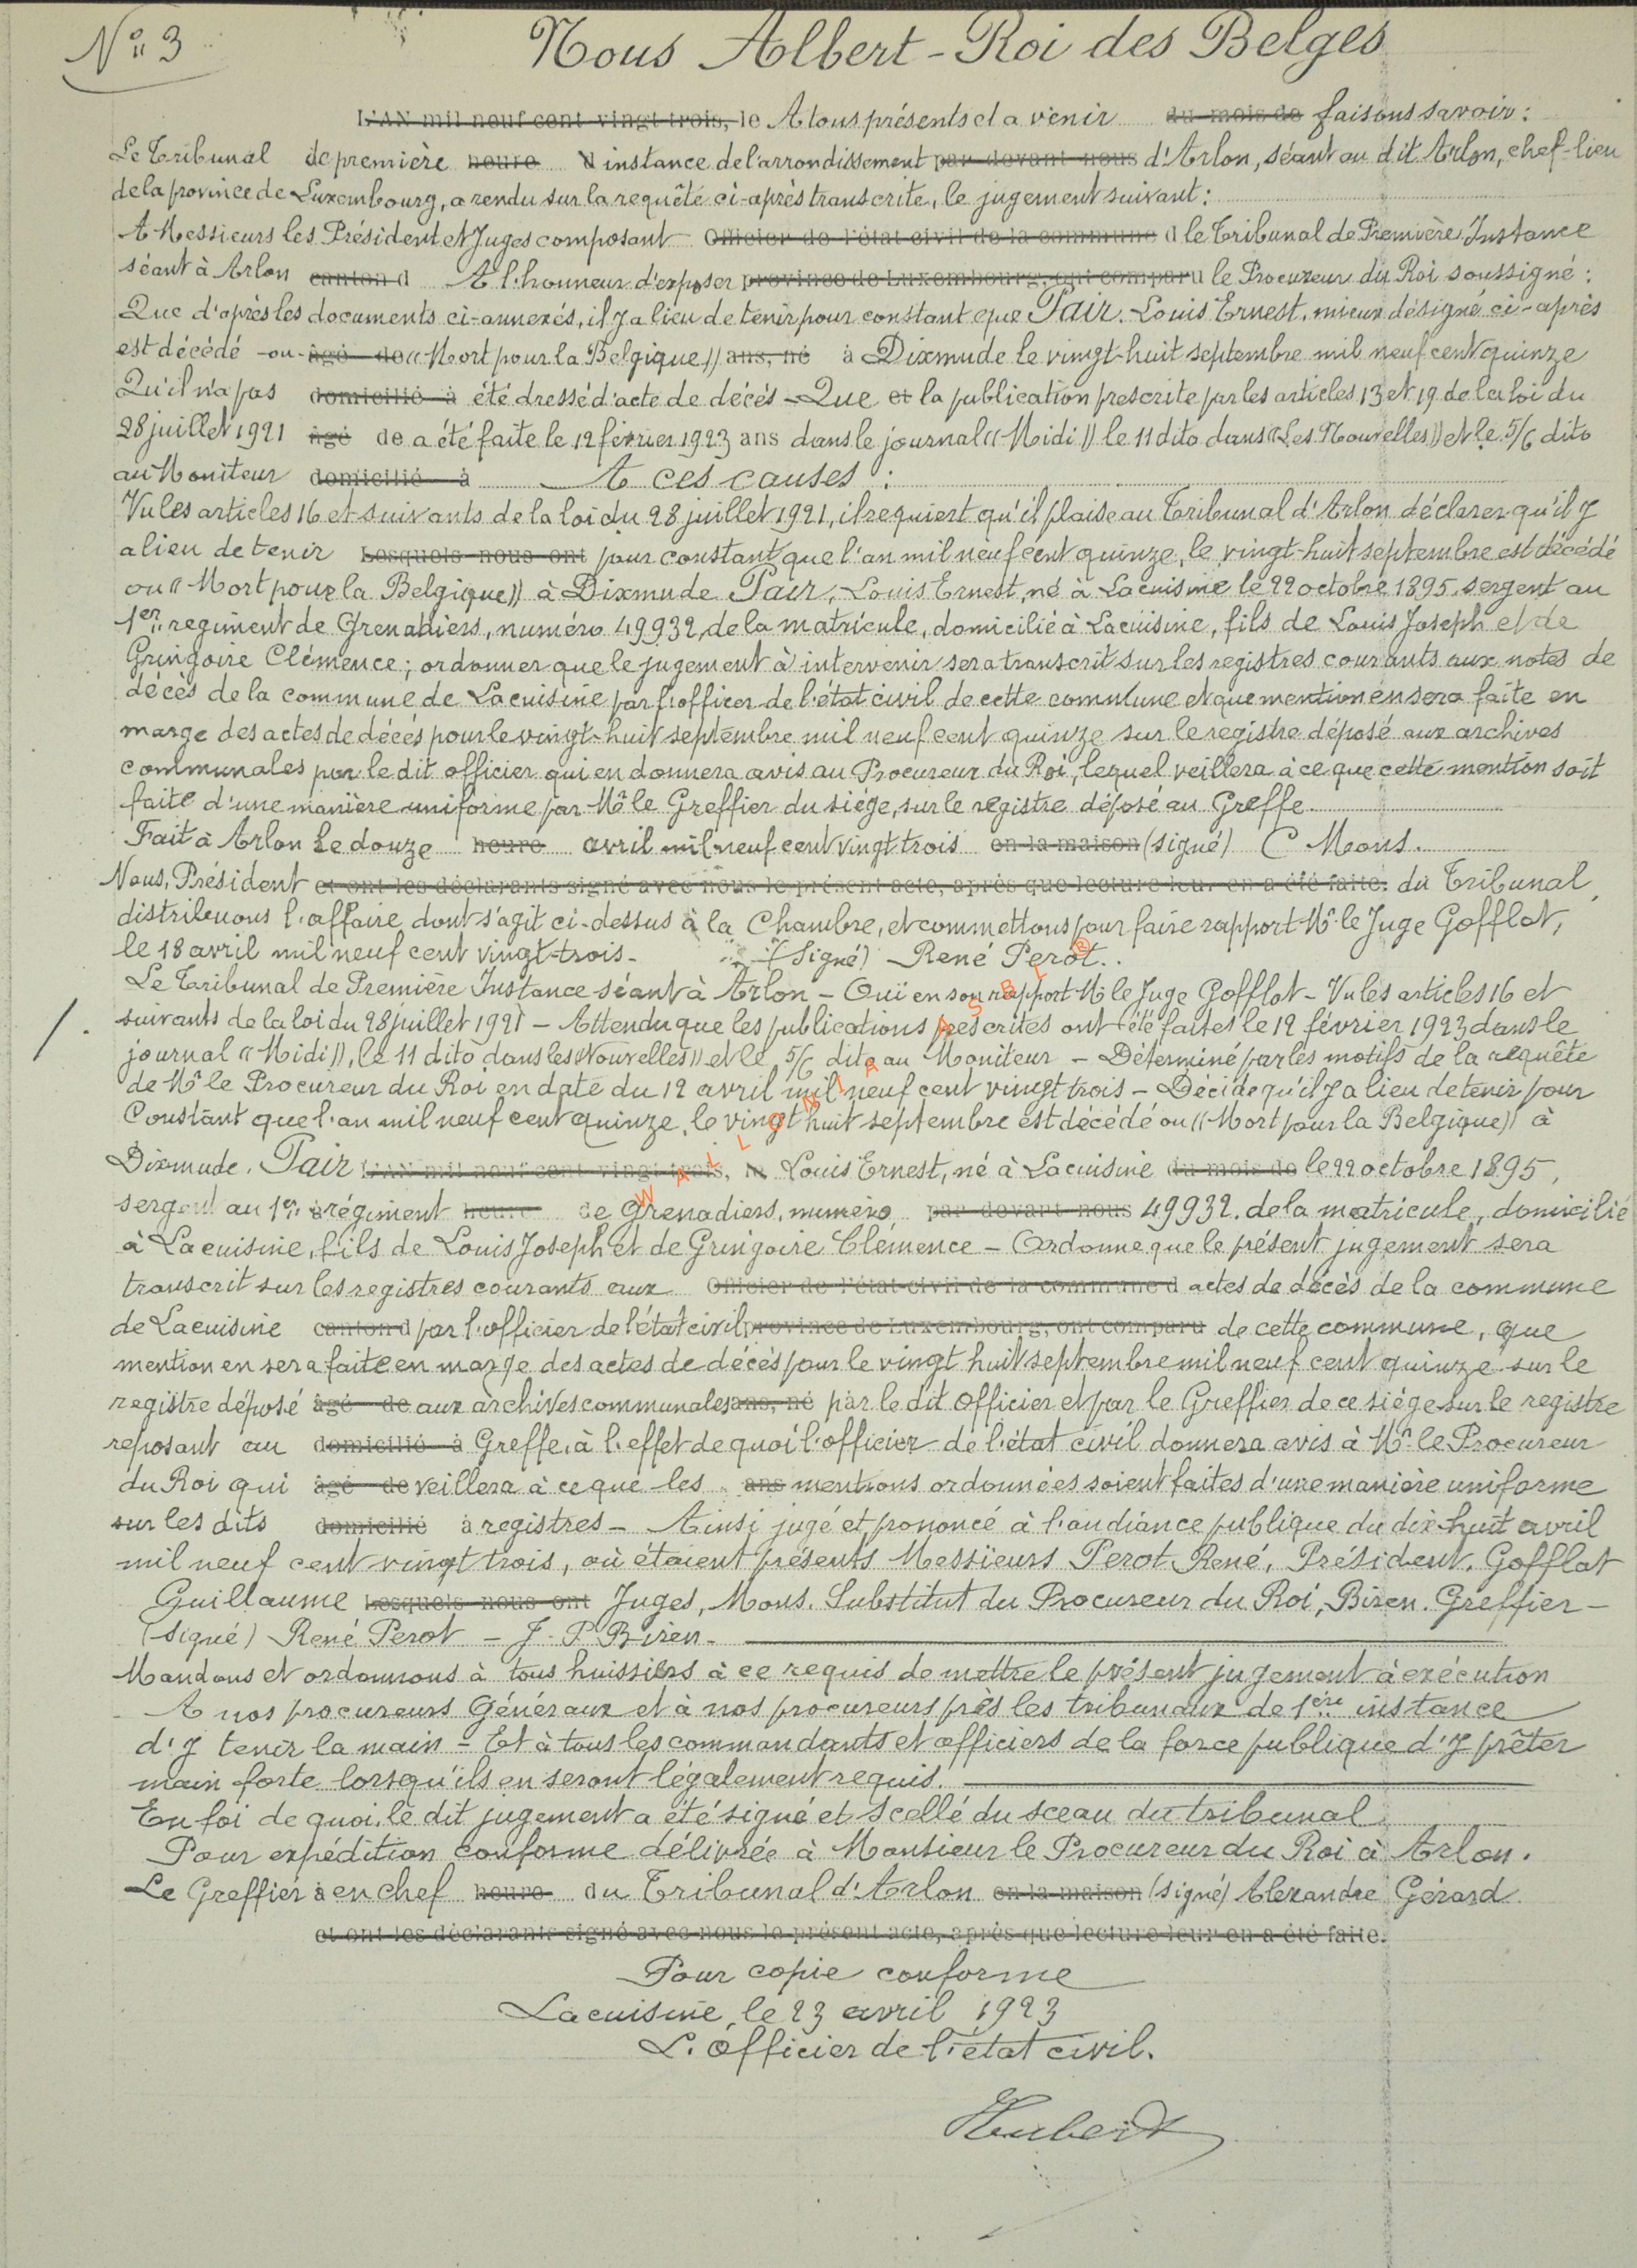 N° 3
Nous Albert - Roi des Belges
L'AN mil neuf cent vingt trois, le A tous présents et a venir du mois de faisons savoir :
Le Tribunal de première heure d'instance de l'arrondissement par devant nous d'Arlon, séant au dit Arlon, chef-lieu
de la province de Luxembourg, a rendu sur la requête ci-après transcrite, le jugement suivant :
A Messieurs les Président et Juges composant Officier de l'état civil de la commune d le Tribunal de Première Instance
séant à Arlon canton d A l'honneur d'exposer province de Luxembourg, ont comparu le Procureur du Roi soussigné :
Que d'après les documents ci-annexés, il y a lieu de tenir pour constant que Pair. Louis Ernest, mieux désigné ci-après
est décédé -ou- âgé de « Mort pour la Belgique » ans, né à Dixmude le vingt-huit septembre mil neuf cent quinze
Qu'il n'a pas domicilié à été dressé d'acte de décés - Que et la publication prescrite par les articles 13 et 19 de la loi du
28 juillet 1921 âgé de a été faite le 12 février 1923 ans dans le journal « Midi » le 11 dito dans « Les Nouvelles » et le 5/6 dito
au Moniteur domicilié à A ces causes :
Vu les articles 16 et suivants de la loi du 28 juillet 1921, il requiert qu'il plaise au Tribunal d'Arlon déclarer qu'il y
a lieu de tenir Lesquels nous ont pour constant que l'an mil neuf cent quinze, le vingt-huit septembre est décédé
ou « Mort pour la Belgique » à Dixmude Pair, Louis Ernest, né à Lacuisine le 22 octobre 1895, sergent au
1er regiment de Grenadiers, numéro 49932, de la matricule, domicilié à Lacuisine, fils de Louis Joseph et de
Gringoire Clémence ; ordonner que le jugement à intervenir sera transcrit sur les registres courants aux notes de
décès de la commune de Lacuisine par l'officer de l'état civil de cette commune et que mention en sera faite en
marge des actes de décés pour le vingt-huit septembre mil neuf cent quinze sur le registre déposé aux archives
communales par le dit officier qui en donnera avis au Procureur du Roi, lequel veillera à ce que cette mention soit
faite d'une manière uniforme par Mr le Greffier du siége, sur le registre déposé au Greffe.
Fait à Arlon le douze heure avril mil neuf cent vingt trois en la maison (signé) C Mons.
Nous, Président et ont les déclarants signé avec nous le présent acte, après que lecture leur en a été faite. du Tribunal
distribuons l'affaire dont s'agit ci-dessus à la Chambre, et commettons pour faire rapport Mr. le Juge Gofflot,
le 18 avril mil neuf cent vingt-trois - (Signé) René Perot.
Le Tribunal de Première Instance séant à Arlon - Ouï en son rapport Mr le Juge Gofflot - Vu les articles 16 et
suivants de la loi du 28 juillet 1921 - Attendu que les publications prescrites ont été faites le 12 février 1923 dans le
journal « Midi », le 11 dito dans les « Nouvelles » et le 5/6 dito au Moniteur - Déterminé par les motifs de la requête
de Mr le Procureur du Roi en date du 12 avril mil neuf cent vingt trois - Décide qu'il y a lieu de tenir pour
Constant que l'an mil neuf cent quinze, le vingt huit septembre est décédé ou « Mort pour la Belgique » à
Dixmude. Pair L'AN mil neuf cent vingt trois, le Louis Ernest, né à Lacuisine du mois de le 22 octobre 1895,
sergent au 1er à régiment heure de Grenadiers, numéro par devant nous 49932. de la matricule, domicilié
à Lacuisine, fils de Louis Joseph et de Gringoire Clémence - Ordonne que le présent jugement sera
transcrit sur les registres courants aux Officier de l'état-civil de la commune d actes de décès de la commune
de Lacuisine canton d par l'officier de l'état civil province de Luxembourg, ont comparu de cette commune, que
mention en sera faite en marge des actes de décès pour le vingt huit septembre mil neuf cent quinze sur le
registre déposé âgé de aux archives communales ans, né par le dit officier et par le Greffier de ce siége sur le registre
reposant au domicilié à Greffe, à l'effet de quoi l'officier de l'état civil donnera avis à Mr. le Procureur
du Roi qui âgé de veillera à ce que les ans mentions ordonnées soient faites d'une manière uniforme
sur les dits domicilié à registres - Ainsi jugé et prononcé à l'audiance publique du dix-huit avril
mil neuf cent vingt trois, où étaient présents Messieurs Perot René, Président. Gofflot
Guillaume Lesquels nous ont Juges, Mons. Substitut du Procureur du Roi, Biren. Greffier -
(Signé) René Perot - J. P Biren -
Mandons et ordonnons à tous huissiers à ce requis de mettre le présent jugement à exécution
A nos procureurs Généraux et à nos procureurs près les tribunaux de 1ère instance
d'y tenir la main - Et à tous les commandants et officiers de la force publique d'y prêter
main forte lorsqu'ils en seront légalement requis.
En foi de quoi, le dit jugement a été signé et scellé du sceau du tribunal
Pour expédition conforme délivrée à Monsieur le Procureur du Roi à Arlon.
Le Greffier à en chef heure du Tribunal d'Arlon en la maison (signé) Alexandre Gérard
et ont les déclarants signé avec nous le présent acte, après que lecture leur en a été faite.
Pour copie conforme
Lacuisine, le 23 avril 1923
L'officier de l'état civil.
Hubert
WALLONIA ASBL ®